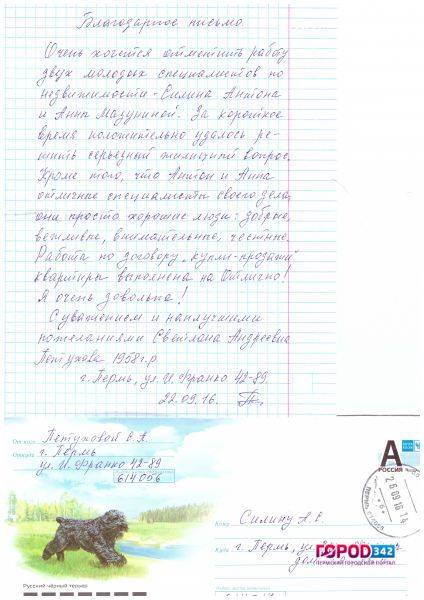 Благодарное письмо
Очень хочется отметить работу
двух молодых специалистов по
недвижимости - Силина Антона
и Анны Мазуниной. За короткое
время положительно удалось ре-
шить серьёзный жилищный вопрос.
Кроме того, что Антон и Анна
отличные специалисты своего дела,
они просто хорошие люди: добрые,
вежливые, внимательные, честные.
Работа по договору "купли-продажи"
квартиры выполнена на Отлично!
Я очень довольна!
С уважением и наилучшими
пожеланиями Светлана Андреевна
Петухова 1958г.р
г. Пермь, ул. И Франко 42-89.
22.09.16.
От кого Петуховой С.А.
Откуда г. Пермь
ул. И. Франко 42-89
614056
А
РОССИЯ
26 09 16 14
Кому Силину А.
Куда г. Пермь, ул.
ГОРОД 342
ПЕРМСКИЙ ГОРОДСКОЙ ПОРТАЛ
Русский чёрный терьер